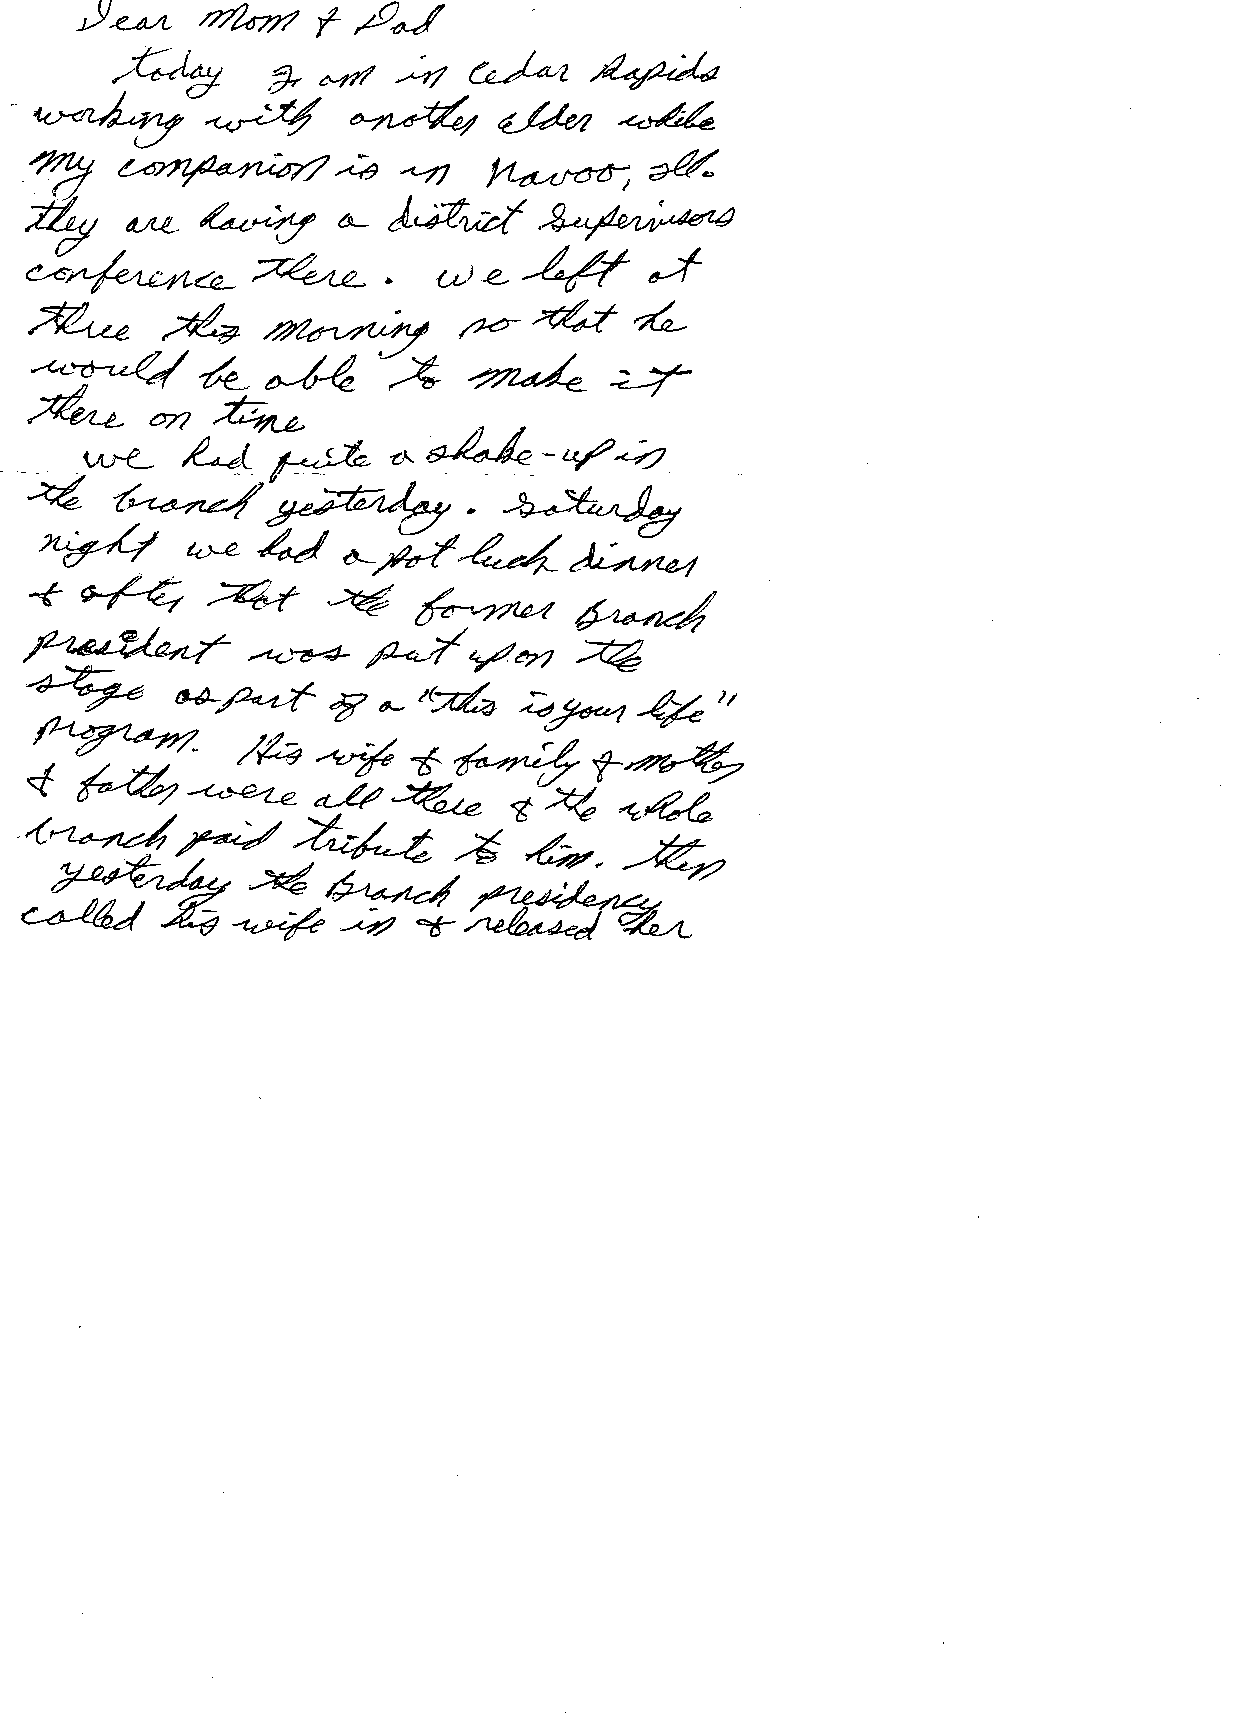 Dear Mom & Dad
today I am in Cedar Rapids
working with another elder while
my companion is in Navoo, Ill.
they are having a district supervisors
conference there. we left at
three this morning so that he
would be able to make it
there on time
we had quite a shake-up in
the branch yesterday. saturday
night we had a pot luck dinner
& after that the former Branch
president was put upon the
stage as part of a "this is your life"
program. His wife & family & mother
& father were all there & the whole
branch paid tribute to him. then
yesterday the Branch presidency
called his wife in & released her